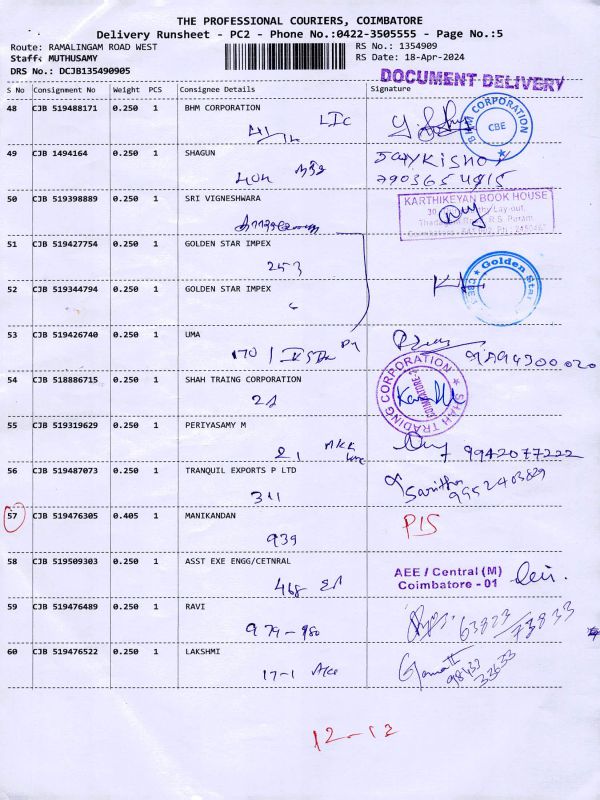 THE PROFESSIONAL COURIERS, COIMBATORE
Delivery Runsheet - PC2 - Phone No.:0422-3505555 - Page No.:5
Route: RAMALINGAM ROAD WEST RS No.: 1354909
Staff: MUTHUSAMY RS Date: 18-Apr-2024
DRS No.: DCJB135490905
DOCUMENT DELIVERY
S No Consignment No Weight PCS Consignee Details Signature
48 CJB 519488171 0.250 1 BHM CORPORATION
LIC
BHM CORPORATION CBE
49 CJB 1494164 0.250 1 SHAGUN
404
JAYKISHOR
7903654915
50 CJB 519398889 0.250 1 SRI VIGNESHWARA
KARTHIKEYAN BOOK HOUSE
51 CJB 519427754 0.250 1 GOLDEN STAR IMPEX
253
52 CJB 519344794 0.250 1 GOLDEN STAR IMPEX
Golden Star
53 CJB 519426740 0.250 1 UMA
170 /
54 CJB 518886715 0.250 1 SHAH TRAING CORPORATION
21
SHAH TRADING CORPORATION
COIMBATORE-2
55 CJB 519319629 0.250 1 PERIYASAMY M
9942077222
56 CJB 519487073 0.250 1 TRANQUIL EXPORTS P LTD
311
Saritha
9952403829
57 CJB 519476305 0.405 1 MANIKANDAN
939
PIS
58 CJB 519509303 0.250 1 ASST EXE ENGG/CETNRAL
468
AEE / Central (M)
Coimbatore - 01
59 CJB 519476489 0.250 1 RAVI
979-980
63823
73833
60 CJB 519476522 0.250 1 LAKSHMI
17-1
98433
33633
12-12